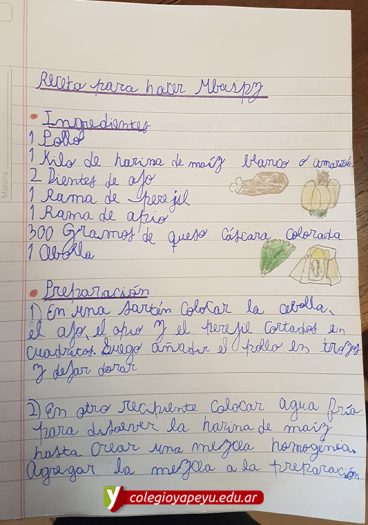 Receta para hacer Mbaspy
Ingredientes
1 Pollo
1 Kilo de harina de maíz blanco o amarillo
2 Dientes de ajo
1 Rama de perejil
1 Rama de apio
300 Gramos de queso cáscara colorada
1 Cebolla
Preparación
1) En una sartén colocar la cebolla,
el ajo, el apio y el perejil cortados en
cuadritos. Luego añadir el pollo en trozos
y dejar dorar
2) En otro recipiente colocar agua fría
para disolver la harina de maíz
hasta crear una mezcla homogénea.
Agregar la mezcla a la preparación
colegioyapeyu.edu.ar